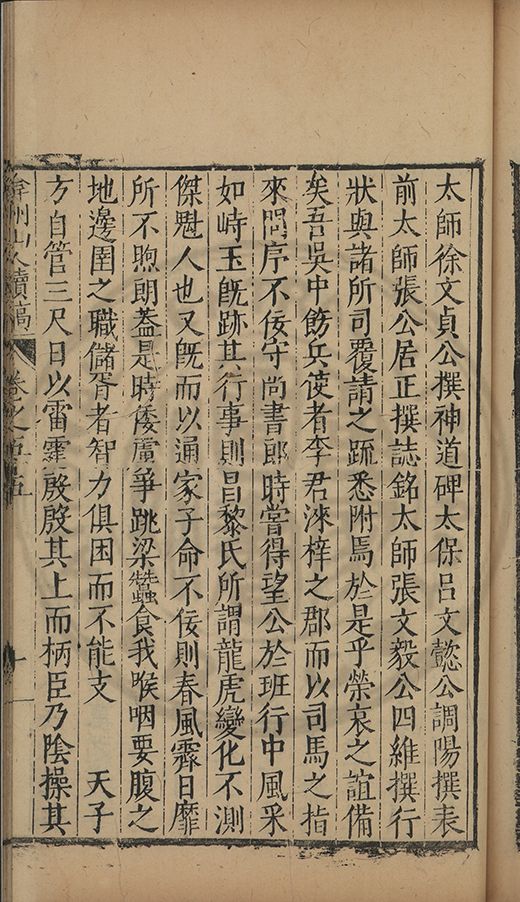 太師徐文貞公撰神道碑太保呂文懿公調陽撰表
前太師張公居正撰誌銘太師張文毅公四維撰行
狀與諸所司覆請之䟽悉附焉於是乎榮哀之誼備
矣吾吳中飭兵使者李君淶梓之郡而以司馬之指
來問序不佞守尚書郎時嘗得望公於班行中風采
如峙玉旣跡其行事則昌黎氏所謂龍虎變化不測
傑魁人也又旣而以通家子命不佞則春風霽日靡
所不煦朗葢是時倭虜爭跳梁蠶食我喉咽要腹之
地邊圉之職儲胥者智力俱困而不能支　天子
方自管三尺日以雷霆殷殷其上而柄臣乃陰操其
弇州山人續稿 卷之五十五